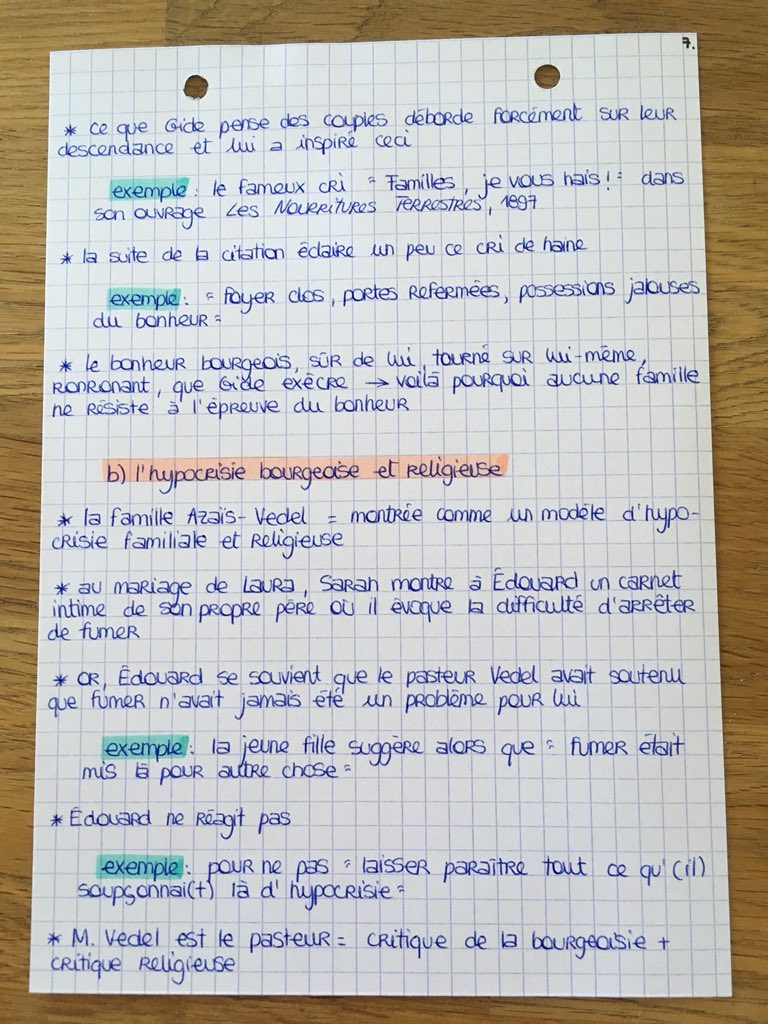 7.
* ce que Gide pense des couples déborde forcément sur leur
descendance et lui a inspiré ceci
exemple : le fameux cri "Familles, je vous hais!" dans
son ouvrage Les Nourritures Terrestres, 1897
* la suite de la citation éclaire un peu ce cri de haine
exemple : "Foyer clos, portes refermées, possessions jalouses
du bonheur"
* le bonheur bourgeois, sûr de lui, tourné sur lui-même,
ronronant, que Gide exècre → voilà pourquoi aucune famille
ne résiste à l'épreuve du bonheur
b) l'hypocrisie bourgeoise et religieuse
* la famille Azaïs-Vedel = montrée comme un modèle d'hypo-
crisie familiale et religieuse
* au mariage de Laura, Sarah montre à Édouard un carnet
intime de son propre père où il évoque la difficulté d'arrêter
de fumer
* or, Édouard se souvient que le pasteur Vedel avait soutenu
que fumer n'avait jamais été un problème pour lui
exemple : la jeune fille suggère alors que "fumer était
mis là pour autre chose"
* Édouard ne réagit pas
exemple : pour ne pas "laisser paraître tout ce qu'(il)
soupçonnai(t) là d'hypocrisie"
* M. Vedel est le pasteur = critique de la bourgeoisie +
critique religieuse